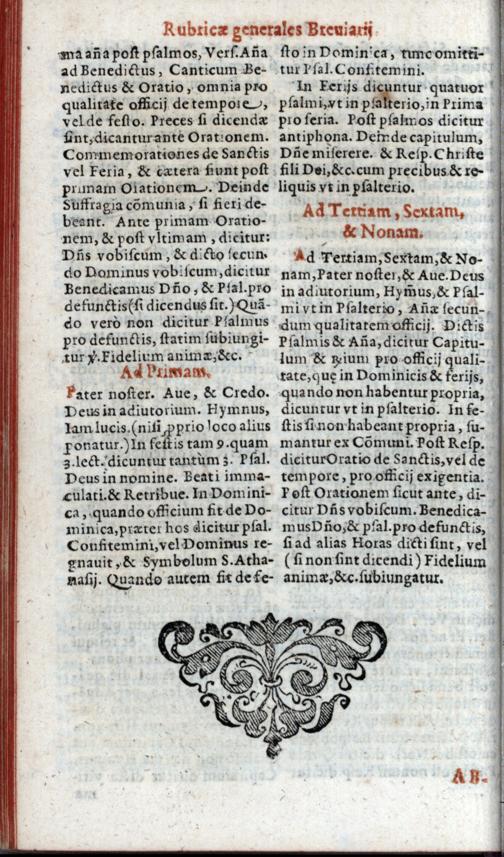 Rubricæ generales Breuiarij.
ma aña post psalmos, Vers. Aña
ad Benedictus, Canticum Be-
nedictus & Oratio, omnia pro
qualitate officij de tempore,
vel de festo. Preces si dicendæ
sint, dicantur antè Orationem.
Commemorationes de Sanctis
vel Feria, & cætera fiunt post
primam Orationem. Deinde
Suffragia cõmunia, si fieri de-
beant. Ante primam Oratio-
nem, & post vltimam, dicitur:
Dñs vobiscum, & dicto secun-
do Dominus vobiscum, dicitur
Benedicamus Dño, & Psal. pro
defunctis (si dicendus sit.) Quã-
do verò non dicitur Psalmus
pro defunctis, statim subiungi-
tur ℣. Fidelium animæ, &c.
Ad Primam.
Pater noster. Aue, & Credo.
Deus in adiutorium. Hymnus,
Iam lucis. (nisi ꝓprio loco alius
ponatur.) In festis tam 9. quam
3. lect. dicuntur tantùm 3. Psal.
Deus in nomine. Beati imma-
culati. & Retribue. In Domini-
ca, quando officium fit de Do-
minica, præter hos dicitur psal.
Confitemini, vel Dominus re-
gnauit, & Symbolum S. Atha-
nasij. Quando autem fit de fe-
sto in Dominica, tunc omitti-
tur Psal. Confitemini.
In Ferijs dicuntur quatuor
psalmi, vt in psalterio, in Prima
pro feria. Post psalmos dicitur
antiphona. Deinde capitulum,
Dñe miserere. & Resp. Christe
fili Dei, &c. cum precibus & re-
liquis vt in psalterio.
Ad Tertiam, Sextam,
& Nonam.
Ad Tertiam, Sextam, & No-
nam, Pater noster, & Aue. Deus
in adiutorium, Hym̃us, & Psal-
mi vt in Psalterio, Añæ secun-
dum qualitatem officij. Dictis
Psalmis & Aña, dicitur Capitu-
lum & ℞ium pro officij quali-
tate, quę in Dominicis & ferijs,
quando non habentur propria,
dicuntur vt in psalterio. In fe-
stis si non habeant propria, su-
mantur ex Cõmuni. Post Resp.
dicitur Oratio de Sanctis, vel de
tempore, pro officij exigentia.
Post Orationem sicut ante, di-
citur Dñs vobiscum. Benedica-
mus Dño, & psal. pro defunctis,
si ad alias Horas dicti sint, vel
(si non sint dicendi) Fidelium
animæ, &c. subiungatur.
AB-